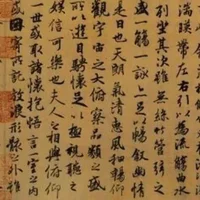 湍暎帶左右引以為流觴曲水
列坐其次雖無絲竹管弦之
盛一觴一詠亦足以暢敘幽情
是日也天朗氣清惠風和暢仰
觀宇宙之大俯察品類之盛
所以遊目騁懷足以極視聽之
娛信可樂也夫人之相與俯仰
一世或取諸懷抱悟言一室之內
或因寄所託放浪形骸之外雖